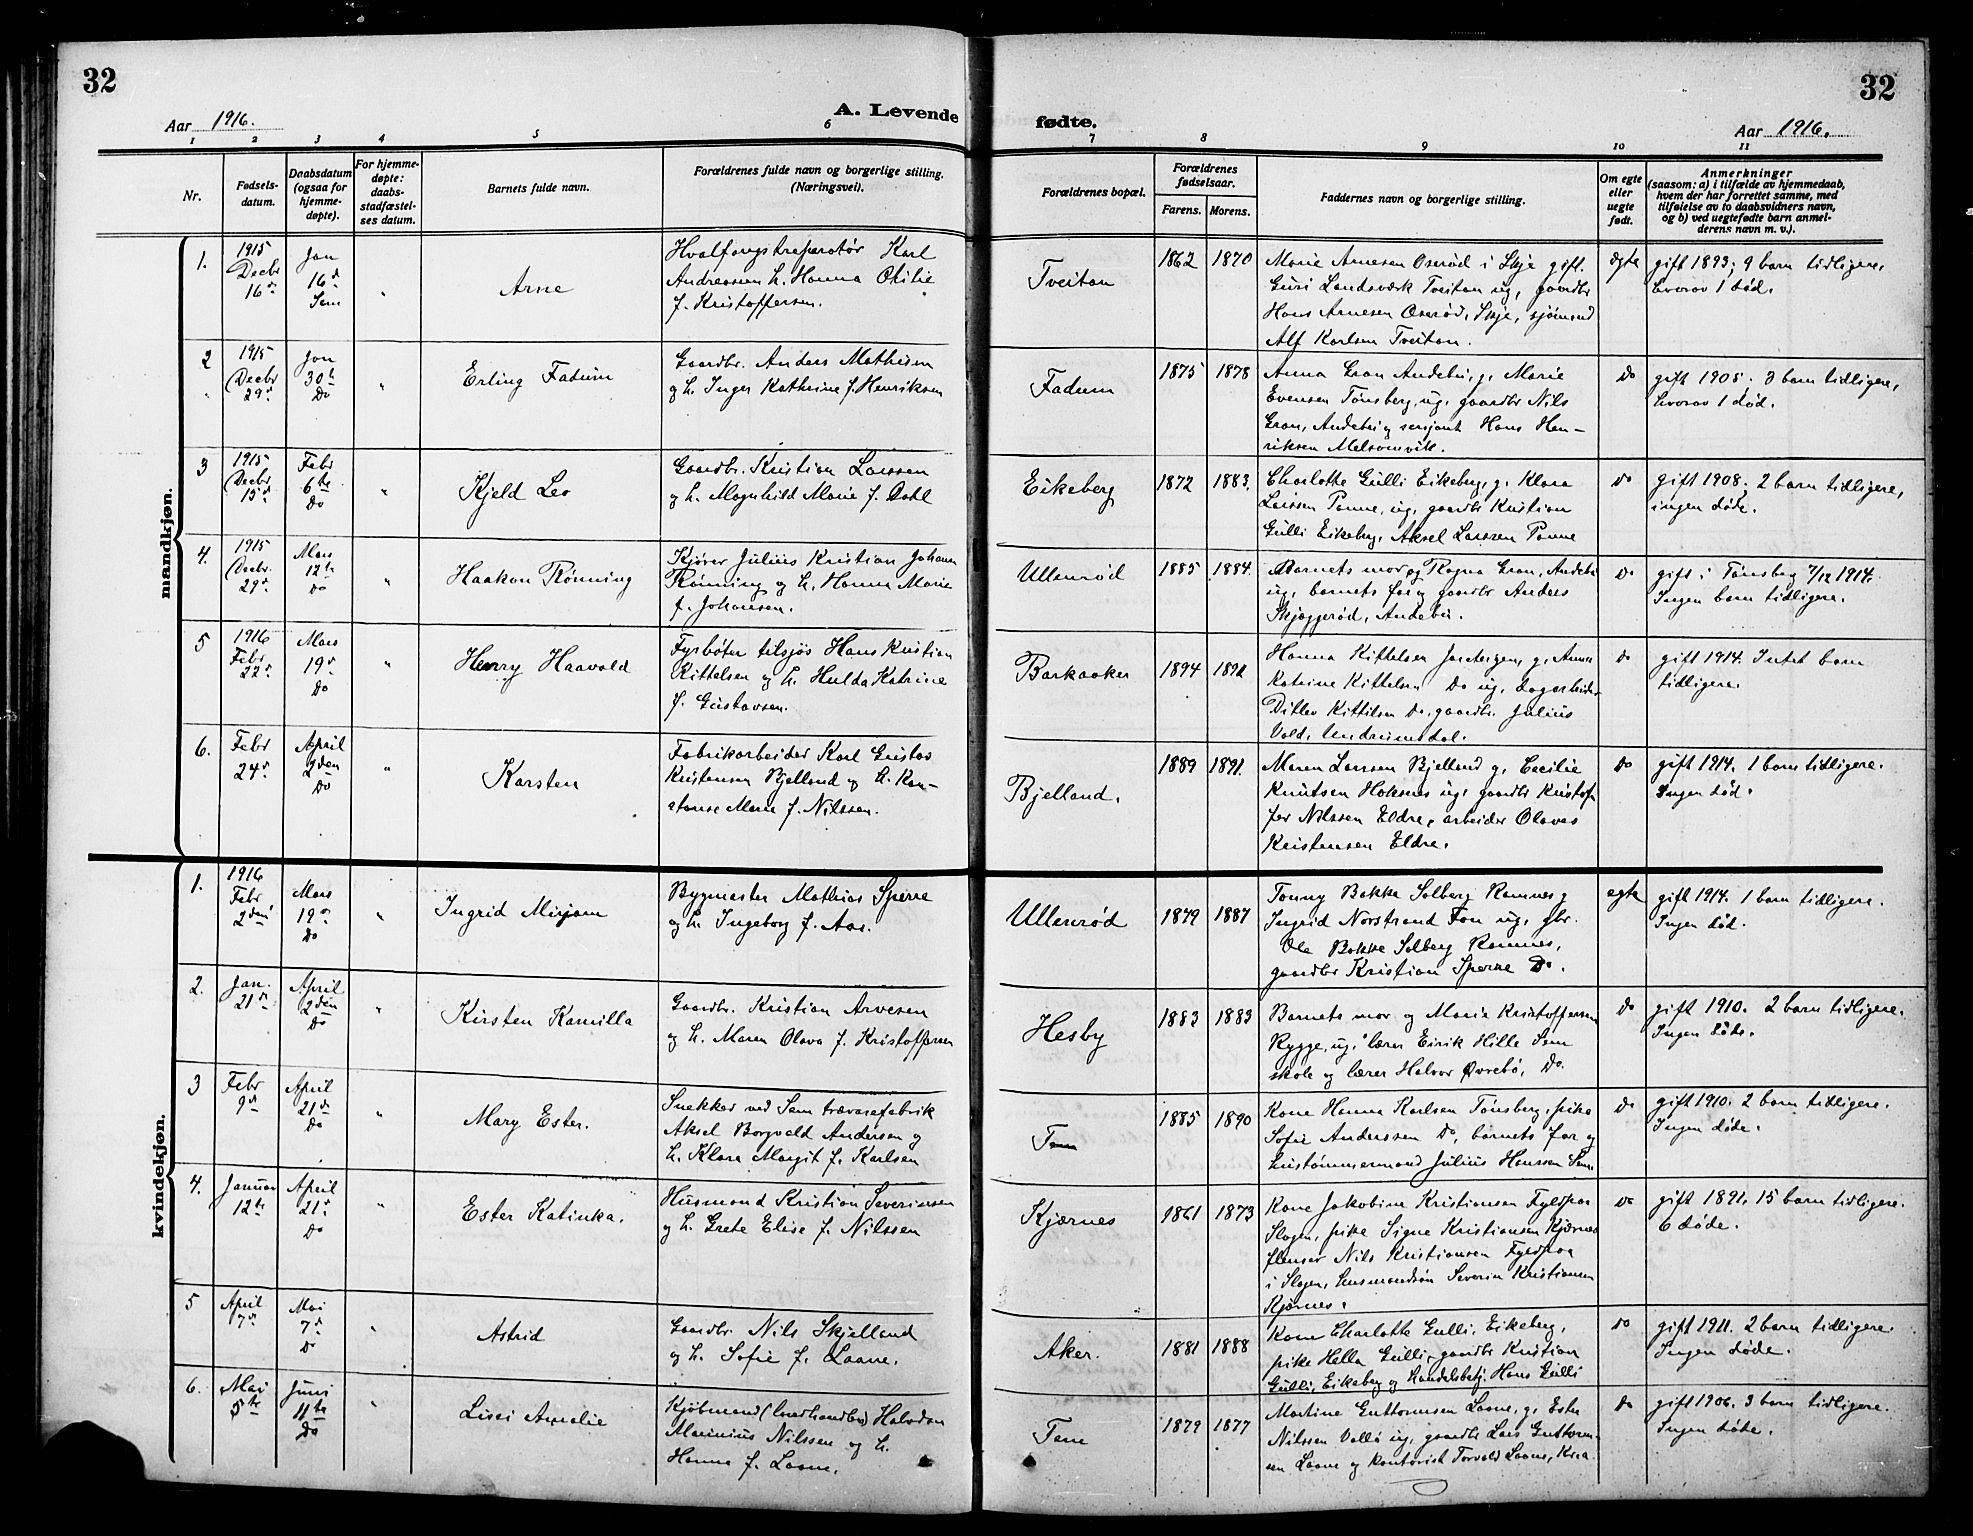 32
32
Aar 1916.
A. Levende fødte.
Aar 1916.
1 2 3 4 5 6 7 8 9 10 11
Nr.
Fødsels-
datum.
Daabsdatum
(ogsaa for
hjemme-
døpte).
For hjemme-
døpte:
daabs-
stadfæstel-
ses datum.
Barnets fulde navn.
Forældrenes fulde navn og borgerlige stilling.
(Næringsvei).
Forældrenes bopæl.
Forældrenes
fødselsaar.
Farens. Morens.
Faddernes navn og borgerlige stilling.
Om egte
eller
uegte
født.
Anmerkninger
(saasom: a) i tilfælde av hjemmedaab,
hvem der har forrettet samme, med
tilføielse av to daabsvidners navn,
og b) ved uegtefødte barn anmel-
derens navn m. v.).
mandkjøn.
1.
1915
Decbr
16de
Jan
16d
Sem
"
Arne
Hvalfangstreparatør Karl
Andreassen h. Hanna Otilie
f. Kristoffersen.
Tveitan
1862 1870
Marie Arnesen Oserød i Skje gift.
Guri Landsværk Tveitan ug, gaardbr
Hans Arnesen Oserød, Skje, sjømand
Alf Karlsen Tveitan.
egte
gift 1893; 9 barn tidligere,
hvorav 1 død.
2
1915
Decbr
29d
Jan
30te
Do
"
Erling Fadum
Gaardbr. Anders Mathisen
og h. Inger Kathrine f. Henriksen
Fadum
1875 1878
Anna Gran Andebu, g, Marie
Evensen Tønsberg, ug, gaardbr Nils
Gran, Andebu og sersjant Hans Hen-
riksen Melsomvik.
Do
gift 1905. 3 barn tidligere,
hvorav 1 død.
3
1915
Decbr
15d
Febr
6te
Do
"
Kjeld Leo
Gaardbr. Kristian Larssen
og h. Magnhild Marie f. Dahl
Eikeberg
1872 1883.
Charlotte Gulli Eikeberg, g, Klara
Larssen Ponne, ug, gaardbr Kristian
Gulli Eikeberg, Aksel Larssen Ponne
Do
gift 1908. 2 barn tidligere,
ingen døde.
4.
1915
Decbr.
29d
Mars
12te
Do
"
Haakon Rønning
Kjører Julius Kristian Johansen
Rønning og h. Hanna Marie
f. Johansen.
Ullenrød
1885 1884.
Barnets mor og Ragna Gran, Andebu
ug, barnets far og gaardbr Anders
Skjeggerød, Andebu.
Do
gift i Tønsberg 7/12 1914.
Ingen barn tidligere.
5
1916
Febr
22d
Mars
19d
Do
"
Henry Haavald
Fyrbøter tilsjøs Hans Kristian
Kittelsen og h. Hulda Katrine
f. Gustavsen.
Barkaaker
1894 1892
Hanna Kittelsen Jareteigen, g, Anna
Katrine Kittelsen Do ug, dagarbeider
Ditlev Kittilsen Do, gaardbr. Julius
Vold, Undrumsdal.
Do
gift 1914. Intet barn
tidligere.
6.
Febr
24d
April
2den
Do
"
Karsten
Fabrikarbeider Karl Gustav
Kristensen Bjelland og h. Kon-
stanse Marie f. Nilssen.
Bjelland.
1889 1891.
Maren Larssen Bjelland g, Cecilie
Knutsen Hoksnes ug, gaardbr Kristof-
fer Nilssen Eldre, arbeider Olaves
Kristensen Eldre.
Do
gift 1914. 1 barn tidligere.
Ingen død.
kvindekjøn.
1.
1916
Febr
2den
Mars
19d
Do
"
Ingrid Mirjam
Bygmester Mathias Sperre
og h. Ingeborg f. Aas.
Ullenrød
1879 1887
Tonny Bakke Solberg Ramnes g
Ingrid Norstrand Fon ug, gbr.
Ole Bakke Solberg Ramnes,
gaardbr Kristian Sperre Do.
egte
gift 1914. 1 barn tidligere.
Ingen død.
2.
Jan.
21d
April
2den
Do
"
Kirsten Kamilla
Gaardbr. Kristian Arvesen
og h. Maren Olava f. Kristoffersen
Hesby
1883 1883
Barnets mor og Marie Kristoffersen
Rygge, ug, lærer Eirik Hille Sem
skole og lærer Halvor Øvrebø, Do.
Do
gift 1910. 2 barn tidligere.
Ingen døde.
3
Febr
9d
April
21d
Do
"
Mary Ester.
Snekker ved Sem trævarefabrik
Aksel Borgvald Andersen og
h. Klara Margit f. Karlsen
Sem
1885 1890
Kone Hanna Karlsen Tønsberg, pike
Sofie Anderssen Do, barnets far og
hustømmermand Julius Hanssen Sem
Do
gift 1910. 2 barn tidligere.
Ingen døde.
4.
Januar
12te
April
21d
Do
"
Ester Katinka.
Husmand Kristian Severinsen
og h. Grete Elise f. Nilssen
Skjærnes
1861 1873
Kone Jakobine Kristiansen Fyldpaa
Slagen, pike Signe Kristiansen Kjærnes
flenser Nils Kristiansen Fyldpaa
i Slagen, husmandsøn Severin Kristiansen
Kjærnes.
Do
gift 1891. 15 barn tidligere.
6 døde.
5
April
7d
Mai
7d
Do
"
Astrid
Gaardbr. Nils Skjelland
og h. Sofie f. Laane.
Aker.
1881 1888
Kone Charlotte Gulli, Eikeberg,
pike Hella Gulli, gaardbr Kristian
Gulli, Eikeberg og handelsbetj. Hans Gulli
Do
gift 1911. 2 barn tidligere.
Ingen døde.
6.
Mai
5te
Juni
11te
Do
"
Lissi Amalie
Kjøbmand (landhandler) Halvdan
Marinius Nilssen og h.
Hanna f. Laane.
Sem
1879 1877
Martine Guttormsen Laane, g, Ester
Nilssen Vallø ug, gaardbr Lars Guttorm-
sen Laane og kontorist Torvald Laane, Kria
Do
gift 1906. 3 barn tidligere.
Ingen døde.